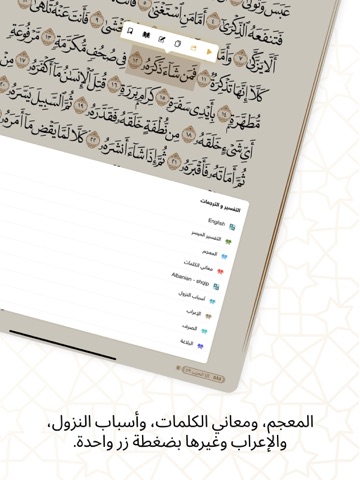 عَبَسَ وَتَوَلَّىٰ
فَتَنفَعَهُ ٱلذِّكْرَىٰ ٤ أَمَّا مَنِ ٱسْتَغْنَىٰ ٥ فَأَنتَ عَنْهُ تَلَهَّىٰ ١٠
كَلَّآ إِنَّهَا تَذْكِرَةٌ ١١ فَمَن شَآءَ ذَكَرَهُۥ ١٢ فِى صُحُفٍ مُّكَرَّمَةٍ ١٣ مَّرْفُوعَةٍ
مُّطَهَّرَةٍۭ ١٤ بِأَيْدِى سَفَرَةٍ ١٥ كِرَامٍۭ بَرَرَةٍ ١٦ قُتِلَ ٱلْإِنسَٰنُ مَآ أَكْفَرَهُۥ ١٧ مِنْ
أَىِّ شَىْءٍ خَلَقَهُۥ ١٨ مِن نُّطْفَةٍ خَلَقَهُۥ فَقَدَّرَهُۥ ١٩ ثُمَّ ٱلسَّبِيلَ يَسَّرَهُۥ ٢٠
ثُمَّ أَمَاتَهُۥ فَأَقْبَرَهُۥ ٢١ ثُمَّ إِذَا شَآءَ أَنشَرَهُۥ ٢٢ كَلَّا لَمَّا يَقْضِ مَآ أَمَرَهُۥ
التفسير و الترجمات
English
التفسير الميسر
المعجم
معاني الكلمات
Albanian - shqip
أسباب النزول
الإعراب
الصرف
البلاغة
المعجم، ومعاني الكلمات، وأسباب النزول،
والإعراب وغيرها بضغطة زر واحدة.